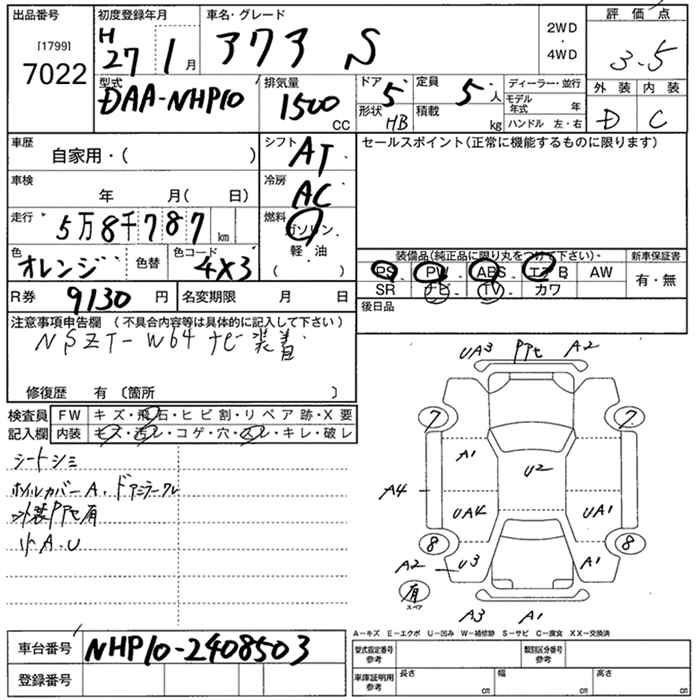 出品番号
[1799]
7022
初度登録年月
H27 1月
車名・グレード
アクア S
2WD
・
4WD
評価点
3.5
外装 内装
D C
型式
DAA-NHP10
排気量
1500
CC
ドア 5
形状 HB
定員 5 人
積載 kg
ディーラー・並行
モデル年式 年
ハンドル 左・右
車歴 自家用・( )
シフト AT
セールスポイント(正常に機能するものに限ります)
車検 年 月( 日)
冷房 AC
走行 5万8千787 km
燃料 ガソリン
軽・油
( )
色 オレンジ 色替
色コード 4X3
装備品(純正品に限り丸をつけて下さい)・
新車保証書
PS PW ABS エアB AW
SR ナビ TV カワ
有・無
R券 9130 円
名変期限 月 日
後日品
注意事項申告欄 (不具合内容等は具体的に記入して下さい)
NSZT-W64 ナビ装着
修復歴 有 〔箇所 〕
検査員
記入欄
FW キズ・飛石・ヒビ割・リペア跡・X要
内装 キズ・汚レ・コゲ・穴・スレ・キレ・破レ
シートシミ
ホイルカバーA. ドアミラークレ
外装PPセ有
リF A.U
UA3 PPセ A2
7 7
A1
U2
A4 UA4 UA1
8 8
A2 U3 A1
有
スペア
A3 A1
A－キズ E－エクボ U－凹み W－補修跡 S－サビ C－腐食 XX－交換済
車台番号 NHP10-2408503
登録番号
型式指定番号
参考
類別区分番号
参考
車庫証明用
参考
長さ cm
幅 cm
高さ cm